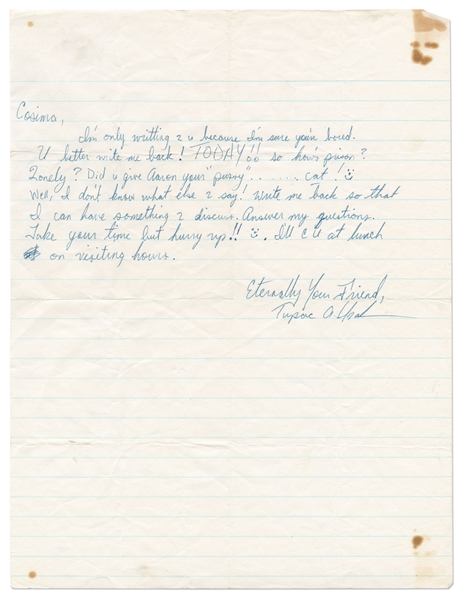 Cosima,
I'm only writting 2 u because I'm sure you're bored.
U better write me back! TODAY!! so how's prison?
Lonely? Did u give Aaron your "pussy"........ cat! ☺
Well, I don't know what else 2 say! Write me back so that
I can have something 2 discuss. Answer my questions.
Take your time but hurry up!! ☺. I'll C U at lunch
on visiting hours.
Eternally Your Friend,
Tupac A.